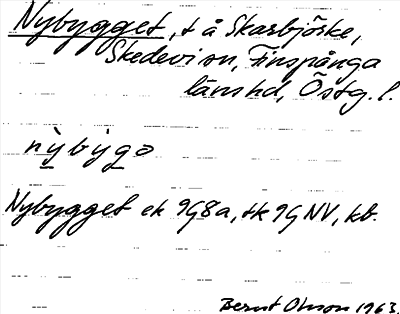 Nybygget, t å Skarbjörke,
Skedevi sn, Finspånga
länshd, Östg. l.
nỳbỳgə
Nybygget ek 9G8a, tk 9G NV, kb.
Bernt Olsson 1963.